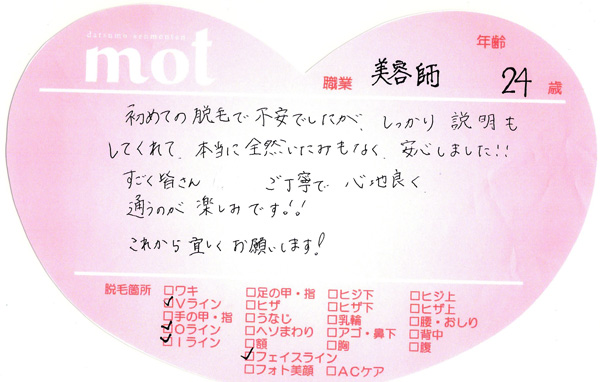 datsumo senmonten
mot
年齢
職業 美容師 24 歳
初めての脱毛で不安でしたが、しっかり説明も
してくれて、本当に全然いたみもなく、安心しました!!
すごく皆さん ご丁寧で心地良く
通うのが楽しみです!!
これから宜しくお願いします!
脱毛箇所 □ワキ □足の甲・指 □ヒジ下 □ヒジ上
☑Vライン □ヒザ □ヒザ下 □ヒザ上
□手の甲・指 □うなじ □乳輪 □腰・おしり
☑Oライン □ヘソまわり □アゴ・鼻下 □背中
☑Iライン □額 □胸 □腹
☑フェイスライン
□フォト美顔 □ACケア